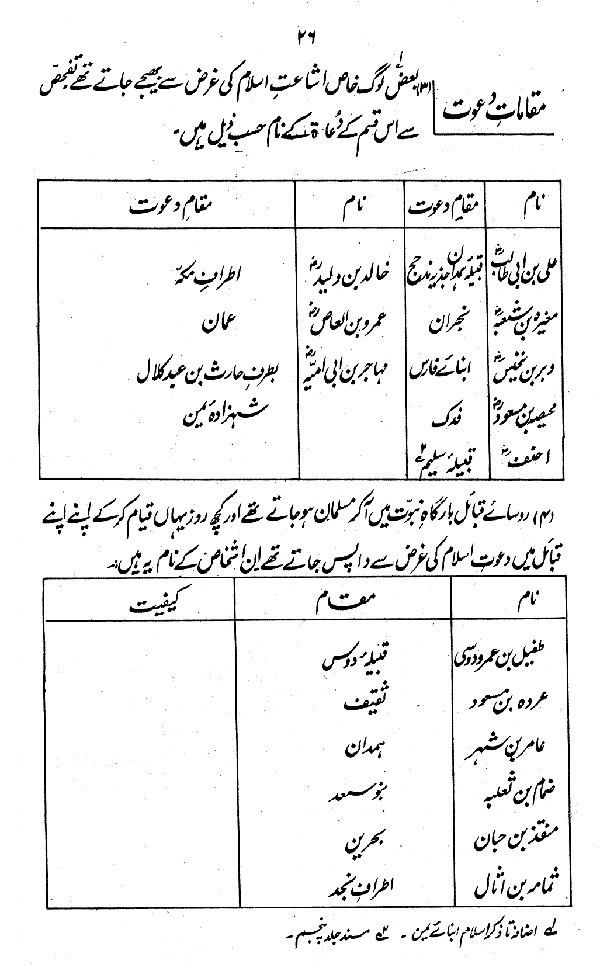 ۲۶
مقاماتِ دعوت
(۳) بعض۱ لوگ خاص اشاعتِ اسلام کی غرض سے بھیجے جاتے تھے تفحص
سے اس قسم کے دُعاۃ کے نام حسب ذیل ہیں۔
نام | مقامِ دعوت | نام | مقامِ دعوت
علی بن ابی طالبؓ | قبیلہ ہمدان جذیمہ مذحج | خالد بن ولیدؓ | اطرافِ مکہّ
مغیرہ بن شعبہؓ | نجران | عمرو بن العاصؓ | عمان
وبر بن نحیسؓ | ابنائے فارس | مہاجر بن ابی امیہؓ | بطرف حارث بن عبد کلال
محیصہ بن مسعودؓ | فدک | شہزادۂ یمن
احنفؓ | قبیلہ سلیم۲
(۴) روسائے قبائل بارگاہِ نبوت میں آ کر مسلمان ہو جاتے تھے اور کچھ روز یہاں قیام کر کے اپنے اپنے
قبائل میں دعوتِ اسلام کی غرض سے واپس جاتے تھے ان اشخاص کے نام یہ ہیں:۔
نام | مقام | کیفیت
طفیل بن عمرو دوسی | قبیلہ دوس
عروہ بن مسعود | ثقیف
عامر بن شہر | ہمدان
ضمام بن ثعلبہ | بنو سعد
منقذ بن حبان | بحرین
ثمامہ بن اثال | اطرافِ نجد
۱؎ اضافہ تا ذکر اسلام ابنائے یمن ۔ ۲؎ مسند جلد پنجم ۔